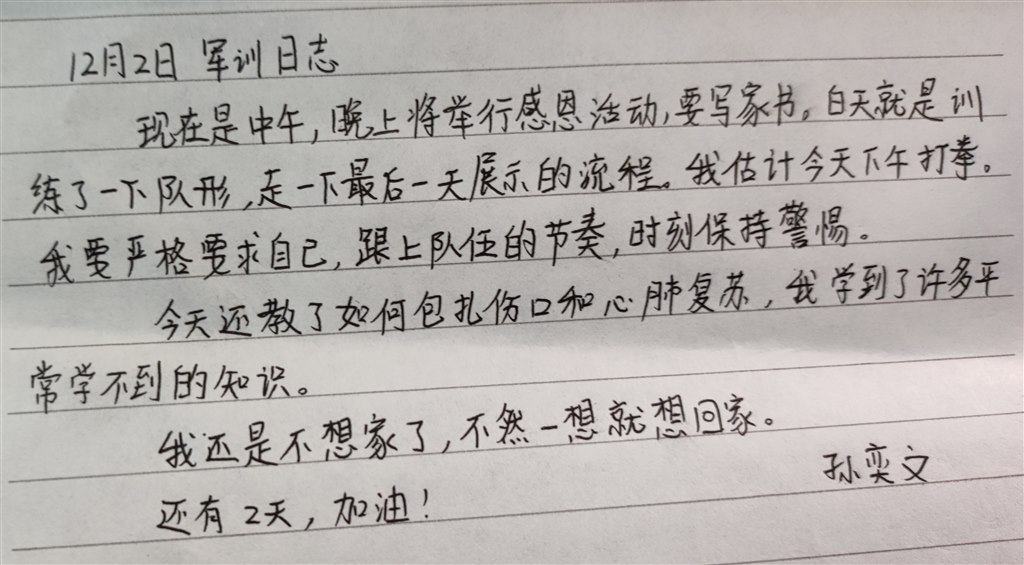 12月2日 军训日志
现在是中午,晚上将举行感恩活动,要写家书。白天就是训
练了一下队形,走一下最后一天展示的流程。我估计今天下午打拳。
我要严格要求自己,跟上队伍的节奏,时刻保持警惕。
今天还教了如何包扎伤口和心肺复苏,我学到了许多平
常学不到的知识。
我还是不想家了,不然一想就想回家。
孙奕文
还有2天,加油!